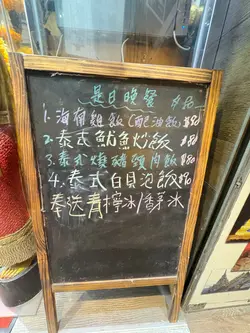 是日晚餐 $80
1. 海南雞飯（配油飯）$80
2. 泰式魷魚炒飯 $80
3. 泰式燒豬頸肉飯 $80
4. 泰式白貝泡飯 $80
奉送青檸冰/香茅冰